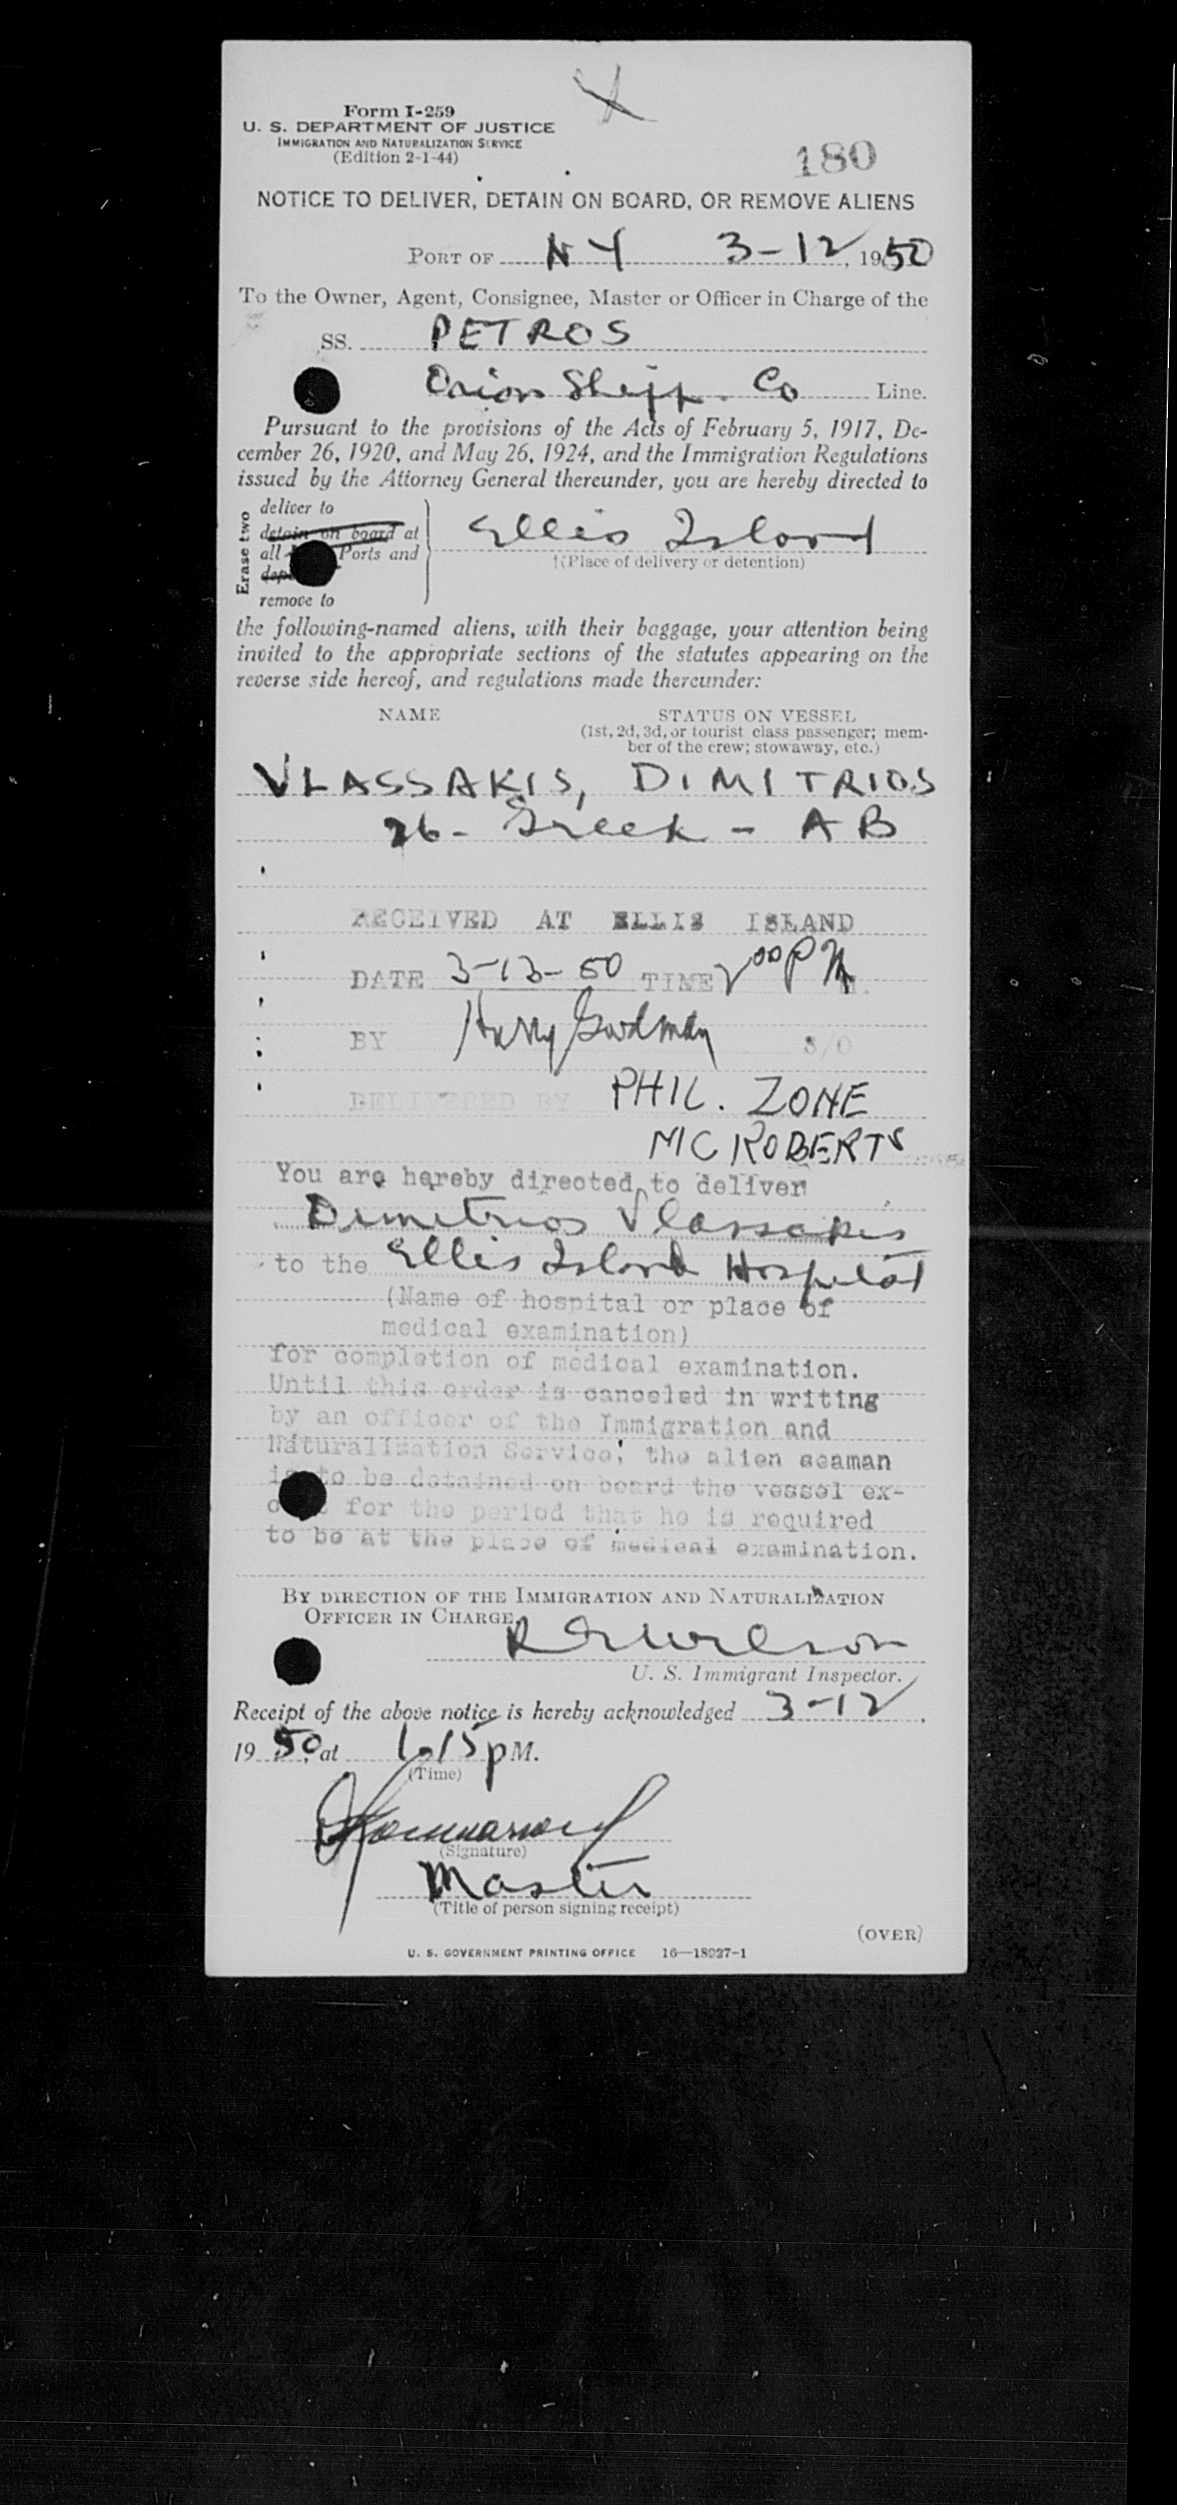 Form I-259
U. S. DEPARTMENT OF JUSTICE
IMMIGRATION AND NATURALIZATION SERVICE
(Edition 2-1-44)
180
NOTICE TO DELIVER, DETAIN ON BOARD, OR REMOVE ALIENS
PORT OF NY 3-12, 1950
To the Owner, Agent, Consignee, Master or Officer in Charge of the
SS. PETROS
Orion Shipp. Co Line.
Pursuant to the provisions of the Acts of February 5, 1917, De-
cember 26, 1920, and May 26, 1924, and the Immigration Regulations
issued by the Attorney General thereunder, you are hereby directed to
Erase two
deliver to
detain on board at
all Ports and
remove to
Ellis Island
(Place of delivery or detention)
the following-named aliens, with their baggage, your attention being
invited to the appropriate sections of the statutes appearing on the
reverse side hereof, and regulations made thereunder:
NAME STATUS ON VESSEL
(1st, 2d, 3d, or tourist class passenger; mem-
ber of the crew; stowaway, etc.)
VLASSAKIS, DIMITRIOS
26 - Greek - AB
RECEIVED AT ELLIS ISLAND
DATE 3-13-50 TIME 2 00 PM M.
BY Harry Goodman S/O
DELIVERED BY PHIL. ZONE
MC ROBERTS
You are hereby directed to deliver
Dimitrios Vlassakis
to the Ellis Island Hospital
(Name of hospital or place of
medical examination)
for completion of medical examination.
Until this order is canceled in writing
by an officer of the Immigration and
Naturalization Service, the alien seaman
is to be detained on board the vessel ex-
for the period that he is required
to be at the place of medical examination.
BY DIRECTION OF THE IMMIGRATION AND NATURALIZATION
OFFICER IN CHARGE,
Wilson
U. S. Immigrant Inspector.
Receipt of the above notice is hereby acknowledged 3-12,
1950, at 1.15 p M.
(Time)
(Signature)
Master
(Title of person signing receipt)
(OVER)
U. S. GOVERNMENT PRINTING OFFICE 16—18927-1